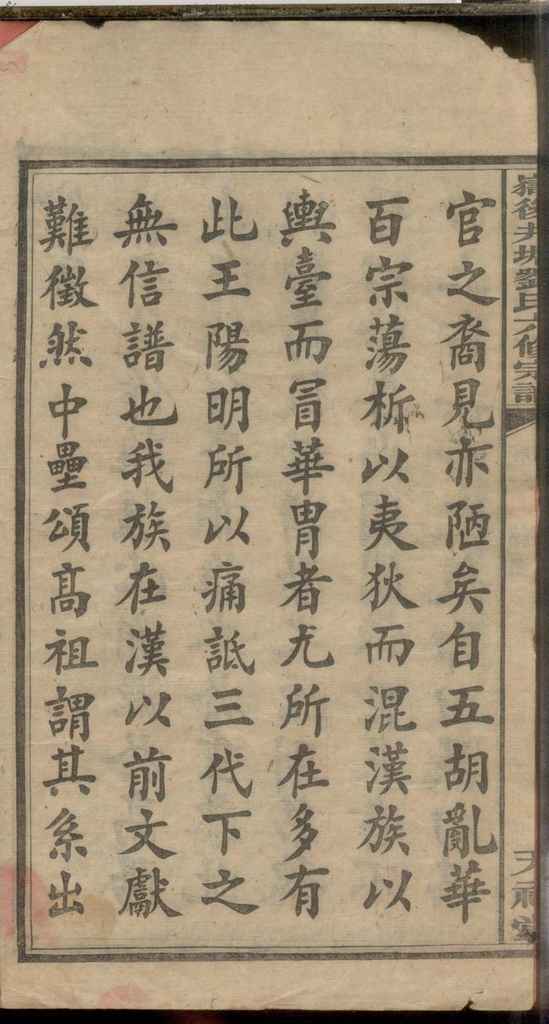 官之裔見亦陋矣自五胡亂華
百宗蕩析以夷狄而混漢族以
輿臺而冒華胄者尤所在多有
此王陽明所以痛詆三代下之
無信譜也我族在漢以前文獻
難徵然中壘頌高祖謂其系出
劉氏六修宗譜